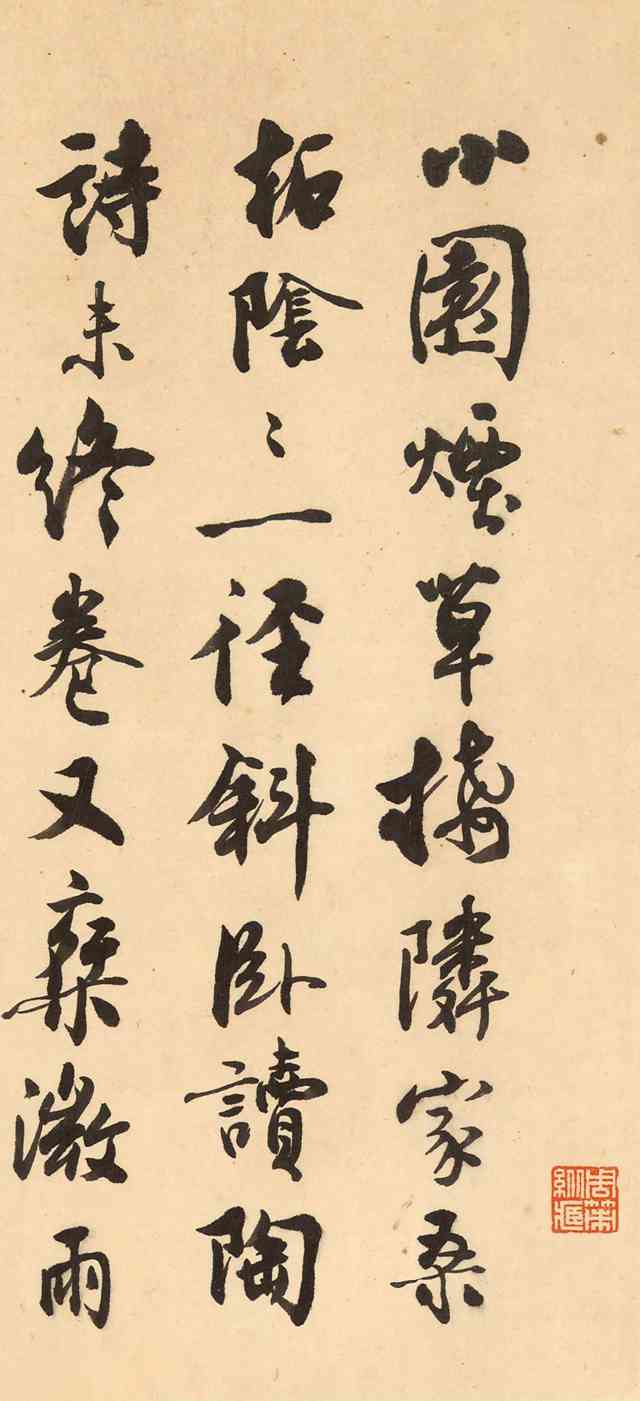 小園煙草接隣家桑
柘陰〻一徑斜卧讀陶
詩未終卷又乘微雨